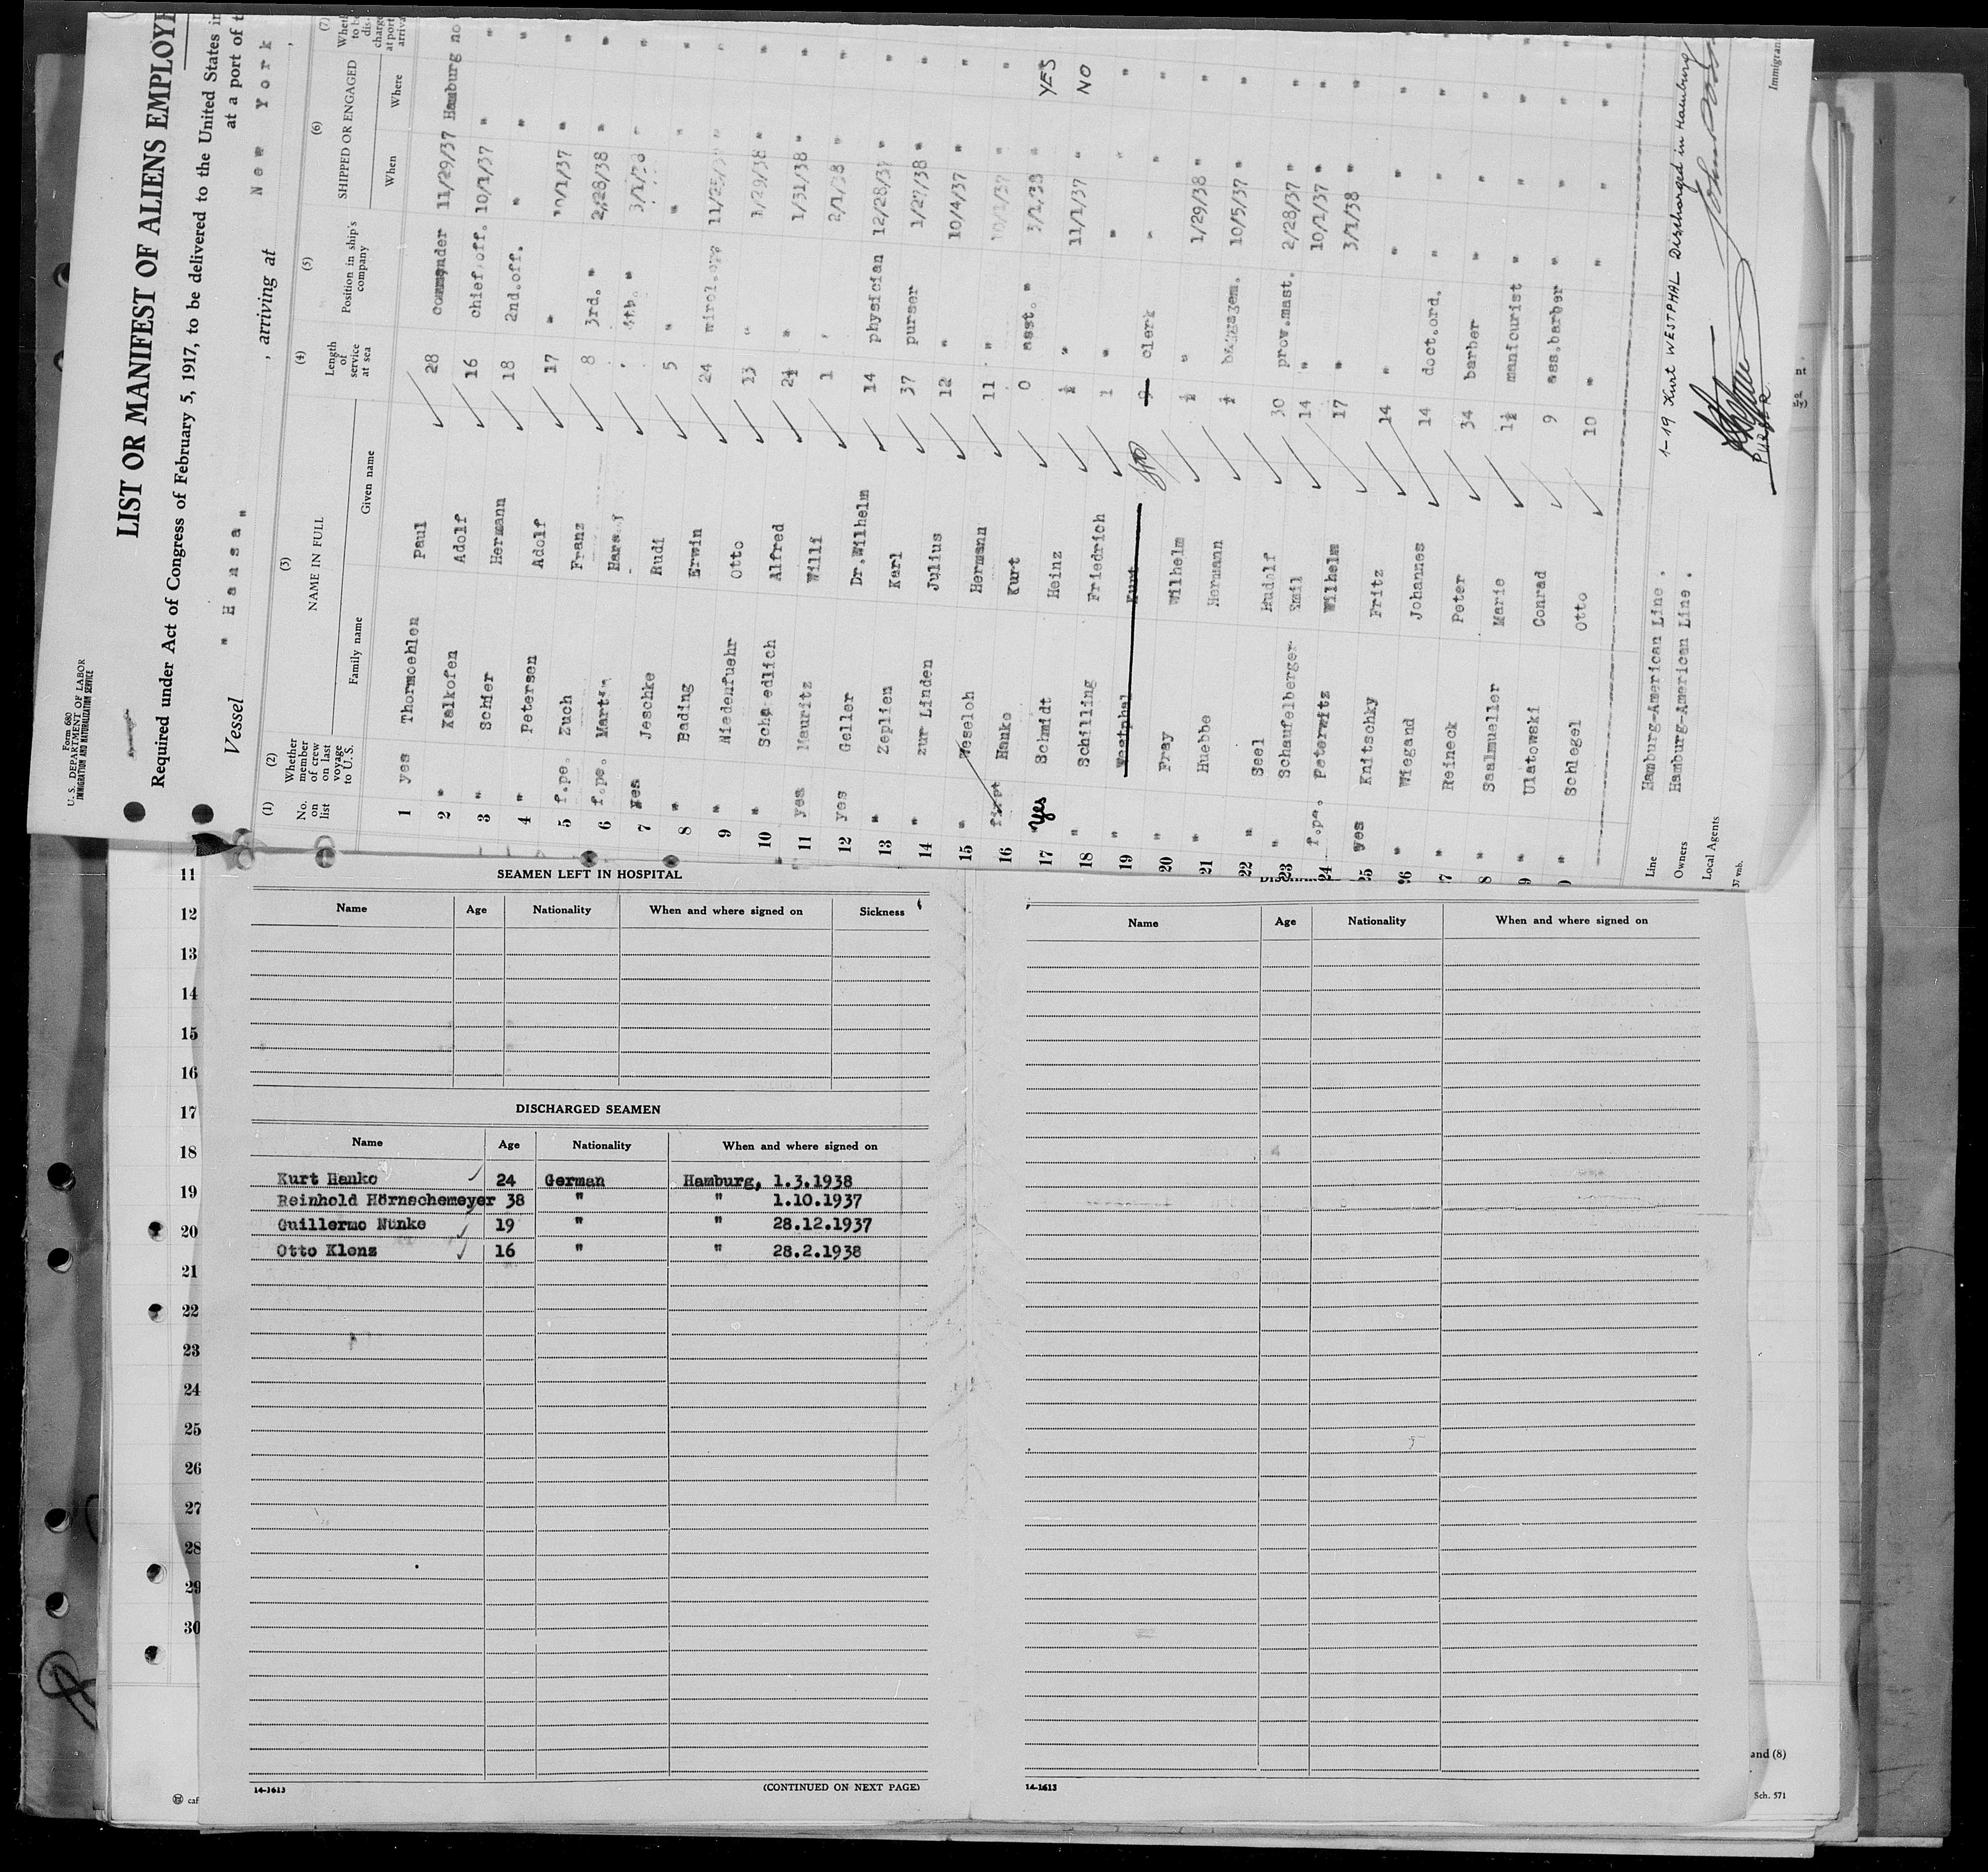 Form 680
U. S. DEPARTMENT OF LABOR
IMMIGRATION AND NATURALIZATION SERVICE
LIST OR MANIFEST OF ALIENS EMPLOYE
Required under Act of Congress of February 5, 1917, to be delivered to the United States in
at a port of t
Vessel " Hansa " , arriving at New York ,
(1) (2) (3) (4) (5) (6) (7)
No. on list
Whether member of crew on last voyage to U.S.
NAME IN FULL
Family name
Given name
Length of service at sea
Position in ship's company
SHIPPED OR ENGAGED
When
Where
Wheth to be dis- charge at port arriva
1 yes Thormoehlen Paul 28 commander 11/29/37 Hamburg no
2 " Kalkofen Adolf 16 chief.off. 10/1/37 " "
3 " Schier Hermann 18 2nd.off. " " "
4 " Petersen Adolf 17 " 10/1/37 " "
5 f.pe. Zuch Franz 8 3rd. " 2/28/38 " "
6 f.pe. Martin 4th. "
7 yes Jeschke Rudi 5 " " " "
8 " Bading Erwin 24
9 " Niedenfuehr Otto 13 " 1/29/38 " "
10 " Schaedlich Alfred 2½ " 1/31/38 " "
11 yes Mauritz Willi 1 " 2/1/38 " "
12 yes Geller Dr.Wilhelm 14 physician 12/28/37 " "
13 " Zeplien Karl 37 purser 1/27/38 " "
14 " zur Linden Julius 12 " 10/4/37 " "
15 " Weseloh Hermann 11 " 10/1/37 " "
16 first Hanko Kurt 0 asst. " 3/1/38 " YES
17 " Yes Schmidt Heinz ½ " 11/1/37 " NO
18 " Schilling Friedrich 1 " " " "
19 " Westphal Kurt 9 clerk " " "
20 " Fray Wilhelm ½ " 1/29/38 " "
21 " Huebbe Hermann ½ baggagem. 10/5/37 " "
22 " Seel Rudolf 30 prov.mast. 2/28/37 " "
23 " Schaufelberger Emil 14 " 10/1/37 " "
24 f.pe. Peterwitz Wilhelm 17 " 3/1/38 " "
25 yes Knitschky Fritz 14 " " " "
26 " Wiegand Johannes 14 doct.ord. " " "
7 " Reineck Peter 34 barber " " "
8 " Saalmueller Marie 1½ manicurist " " "
9 " Ulatowski Conrad 9 ass.barber " " "
" Schlegel Otto 10 " " " "
Line Hamburg-American Line .
Owners Hamburg-American Line .
Local Agents
1-19 Kurt WESTPHAL Discharged in Hamburg
PURSER
Immigran
11
12
13
14
15
16
17
18
19
20
21
22
23
24
25
26
27
28
29
30
SEAMEN LEFT IN HOSPITAL
Name Age Nationality When and where signed on Sickness
DISCHARGED SEAMEN
Name Age Nationality When and where signed on
Kurt Hanko 24 German Hamburg, 1.3.1938
Reinhold Hörnschemeyer 38 " " 1.10.1937
Guillermo Nünke 19 " " 28.12.1937
Otto Klenz 16 " " 28.2.1938
14-1613 (CONTINUED ON NEXT PAGE)
Name Age Nationality When and where signed on
14-1613
and (8)
Sch. 571